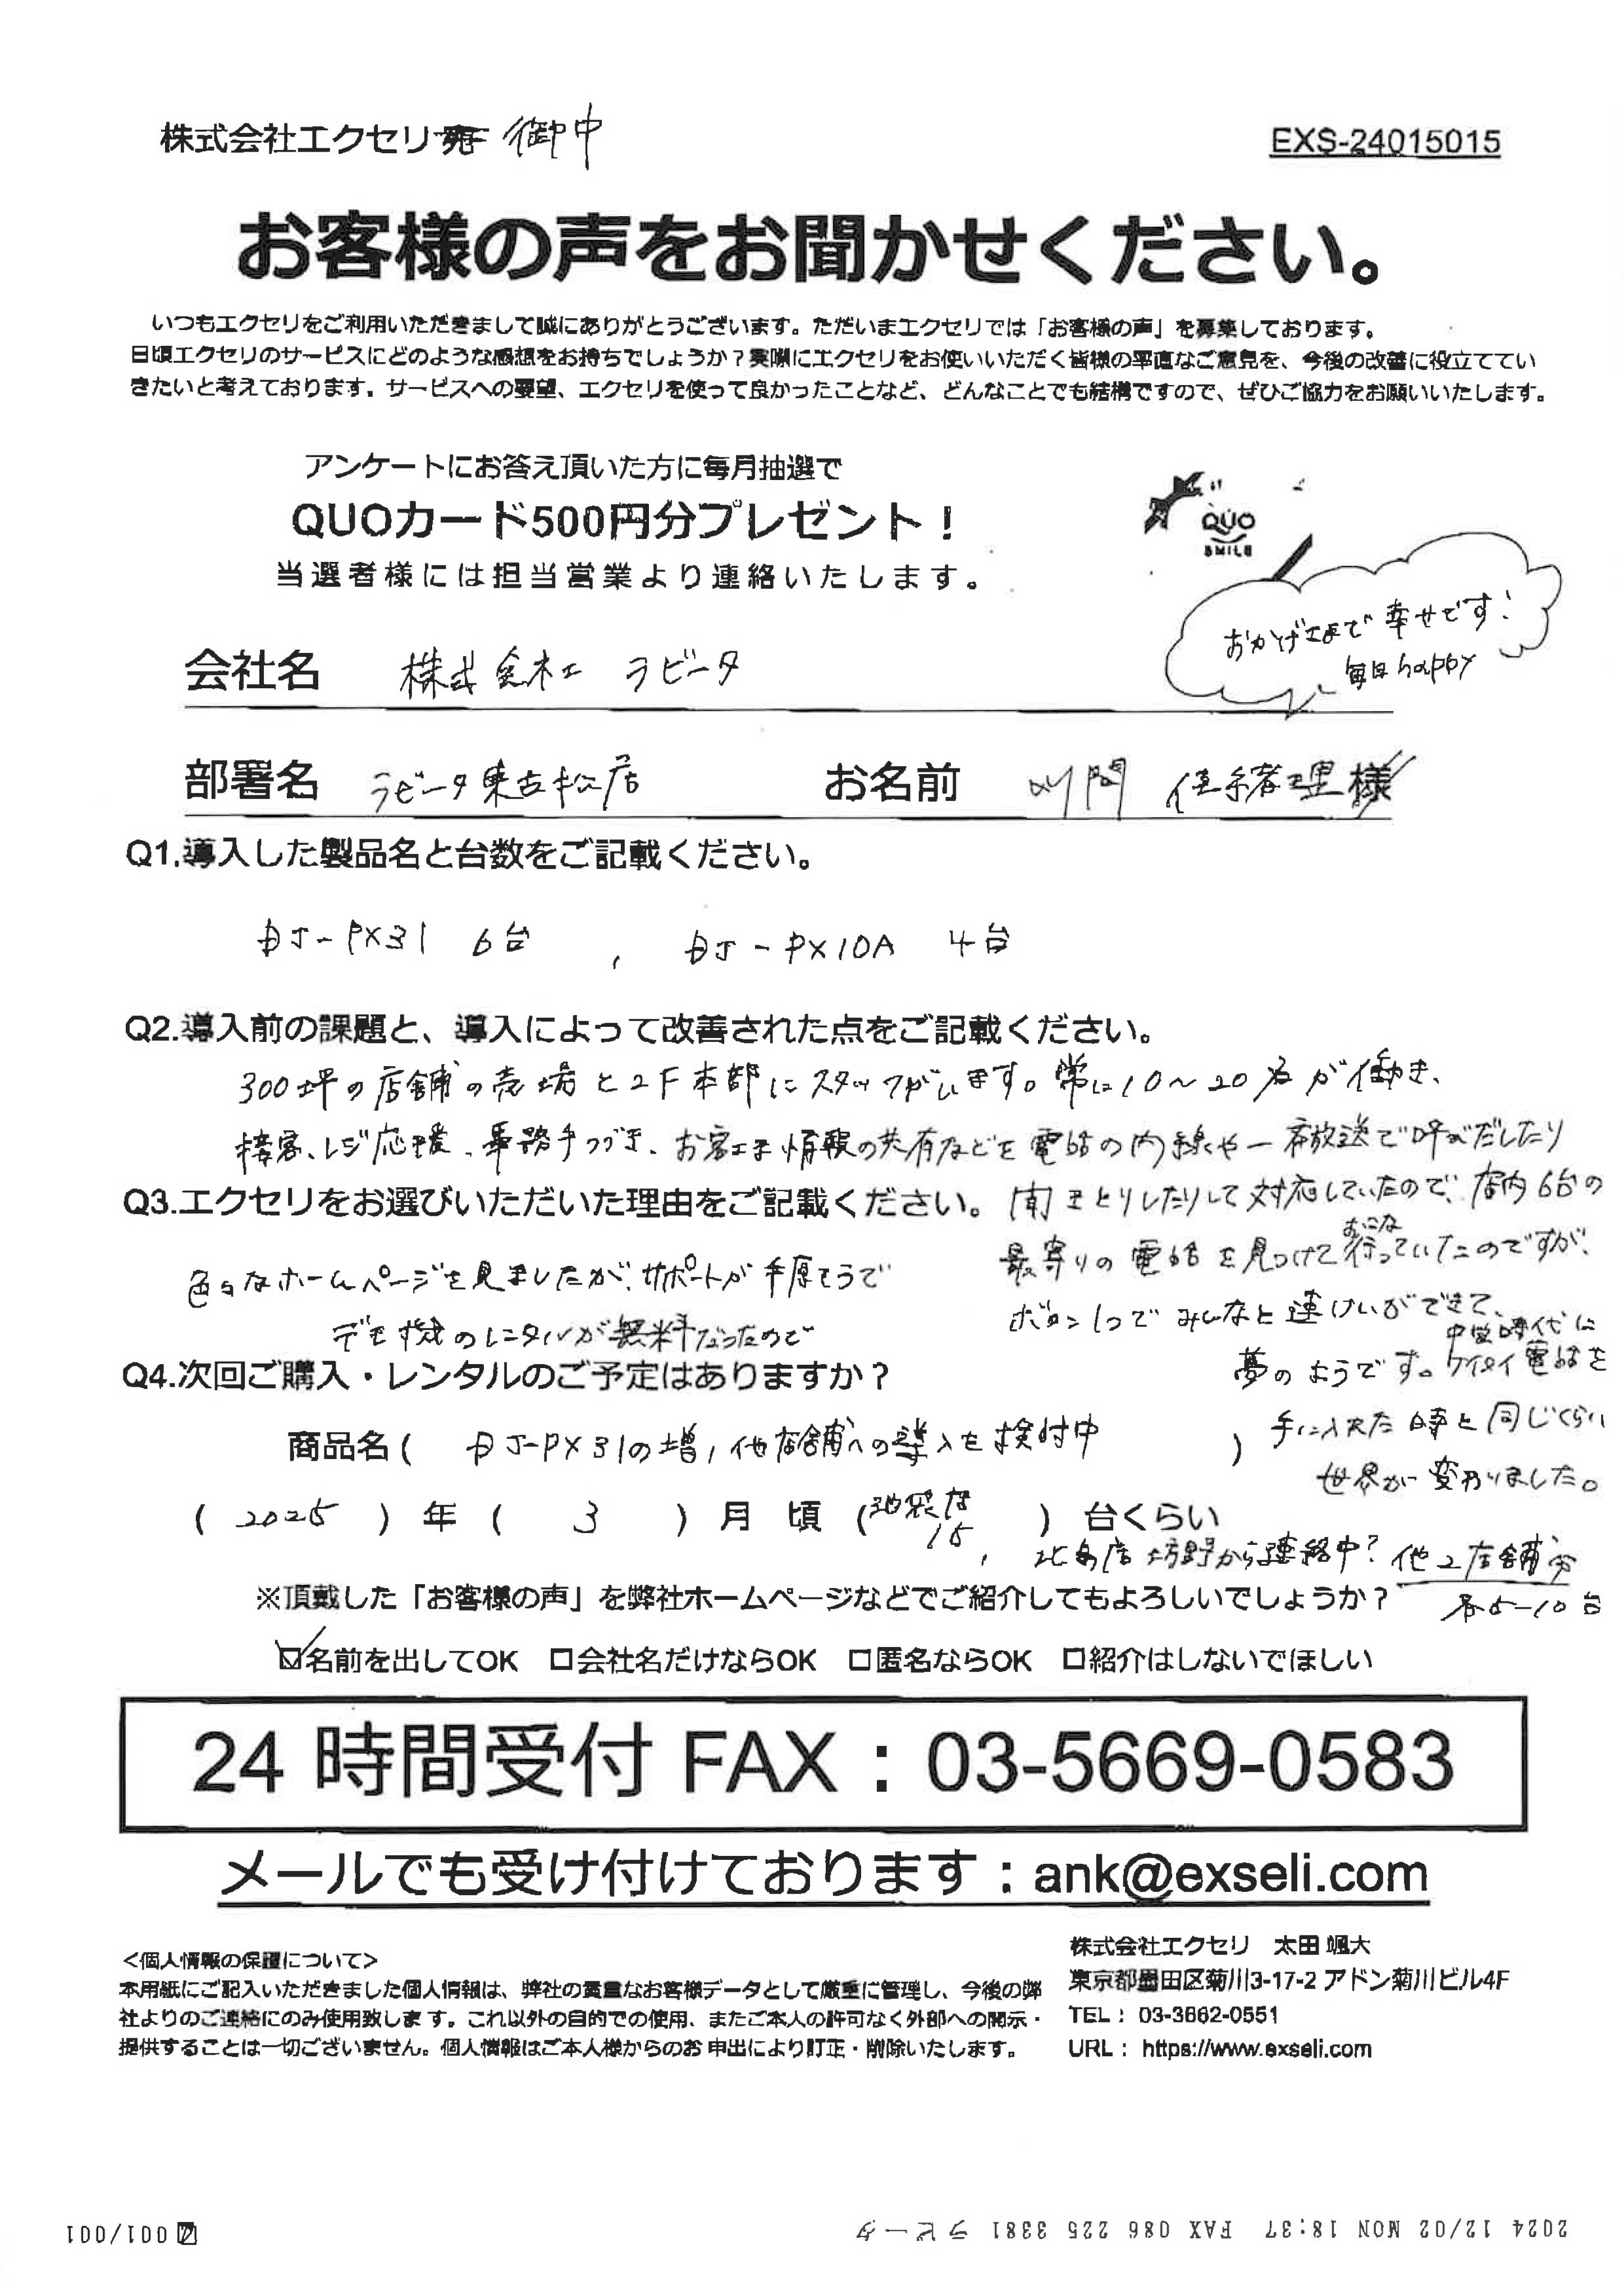 株式会社エクセリ 御中
EXS-24015015
お客様の声をお聞かせください。
いつもエクセリをご利用いただきまして誠にありがとうございます。ただいまエクセリでは「お客様の声」を募集しております。
日頃エクセリのサービスにどのような感想をお持ちでしょうか？実際にエクセリをお使いいただく皆様の率直なご意見を、今後の改善に役立ててい
きたいと考えております。サービスへの要望、エクセリを使って良かったことなど、どんなことでも結構ですので、ぜひご協力をお願いいたします。
アンケートにお答え頂いた方に毎月抽選で
QUOカード500円分プレゼント！
当選者様には担当営業より連絡いたします。
QUO
SMILE
おかげさまで幸せです！
毎日happy
会社名 株式会社 ラビータ
部署名 ラビータ東古松店 お名前 様
Q1.導入した製品名と台数をご記載ください。
DJ-PX31 6台 , DJ-PX10A 4台
Q2.導入前の課題と、導入によって改善された点をご記載ください。
300坪の店舗の売場と2F本部にスタッフがいます。常に10～20名が働き、
接客、レジ応援、事務手つづき、お客さま情報の共有などを電話の内線や一斉放送で呼びだしたり
聞きとりしたりして対応していたので、店内6台の
最寄りの電話を見つけて行っていたのですが、
おこな
ボタン1つでみんなと連けいができて、
夢のようです。中学時代にケイタイ電話を
手に入れた時と同じくらい
世界が変わりました。
Q3.エクセリをお選びいただいた理由をご記載ください。
色々なホームページを見ましたが、サポートが手厚そうで
デモ機のレンタルが無料だったので
Q4.次回ご購入・レンタルのご予定はありますか？
商品名( DJ-PX31の増, 他店舗への導入を検討中 )
( 2025 ) 年 ( 3 ) 月 頃 ( 15 ) 台くらい
から連絡中? 他2店舗分
各5-10台
※頂戴した「お客様の声」を弊社ホームページなどでご紹介してもよろしいでしょうか？
☑名前を出してOK □会社名だけならOK □匿名ならOK □紹介はしないでほしい
24 時間受付 FAX：03-5669-0583
メールでも受け付けております：ank@exseli.com
＜個人情報の保護について＞
本用紙にご記入いただきました個人情報は、弊社の貴重なお客様データとして厳重に管理し、今後の弊
社よりのご連絡にのみ使用致します。これ以外の目的での使用、またご本人の許可なく外部への開示・
提供することは一切ございません。個人情報はご本人様からのお申出により訂正・削除いたします。
株式会社エクセリ 太田 颯大
東京都墨田区菊川3-17-2 アドン菊川ビル4F
TEL： 03-3662-0551
URL： https://www.exseli.com
2024 12/02 MON 18:37 FAX 086 225 3381 ラビータ
001/001